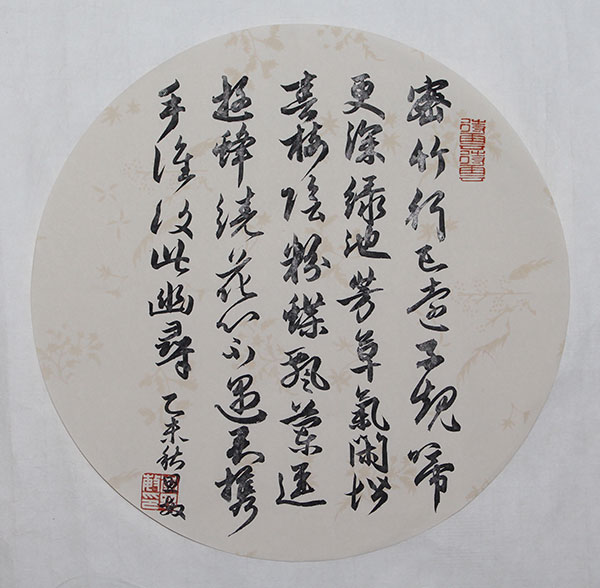 密竹行已遠子規啼
更深綠池芳草氣閑堦
春樹陰粉蝶飄蘭逕
遊蜂繞花心不遇君攜
手誰復此幽尋
乙未秋